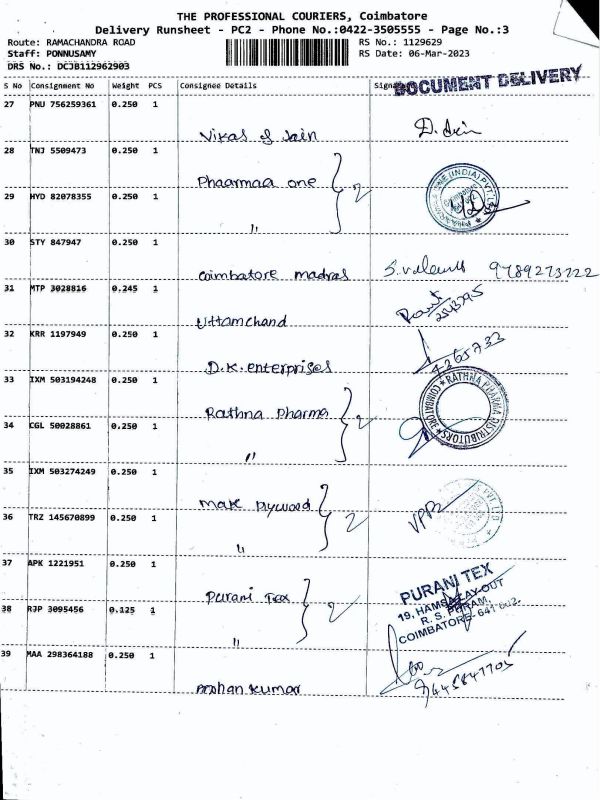 THE PROFESSIONAL COURIERS, Coimbatore
Delivery Runsheet - PC2 - Phone No.:0422-3505555 - Page No.:3
Route: RAMACHANDRA ROAD RS No.: 1129629
Staff: PONNUSAMY RS Date: 06-Mar-2023
DRS No.: DCJB112962903
DOCUMENT DELIVERY
S No Consignment No Weight PCS Consignee Details
27 PNU 756259361 0.250 1
Vikas J Jain D. Jain
28 TNJ 5509473 0.250 1
Phaarmaa one 2
29 HYD 82078355 0.250 1
"
30 STY 847947 0.250 1
Coimbatore madras 9789273222
31 MTP 3028816 0.245 1
Uttamchand
32 KRR 1197949 0.250 1
D.K. enterprises
33 IXM 503194248 0.250 1
Rathna Pharma 2
RATHNA PHARMA DISTRIBUTORS ★ COIMBATORE ★
34 CGL 50028861 0.250 1
"
35 IXM 503274249 0.250 1
Mak Plywood 2
36 TRZ 145670899 0.250 1
"
37 APK 1221951 0.250 1
Purani Tex 2
PURANI TEX
38 RJP 3095456 0.125 1
19, HAMSALAY-OUT
R. S. PURAM,
COIMBATORE- 641 002.
"
39 MAA 298364188 0.250 1
Arohan kumar